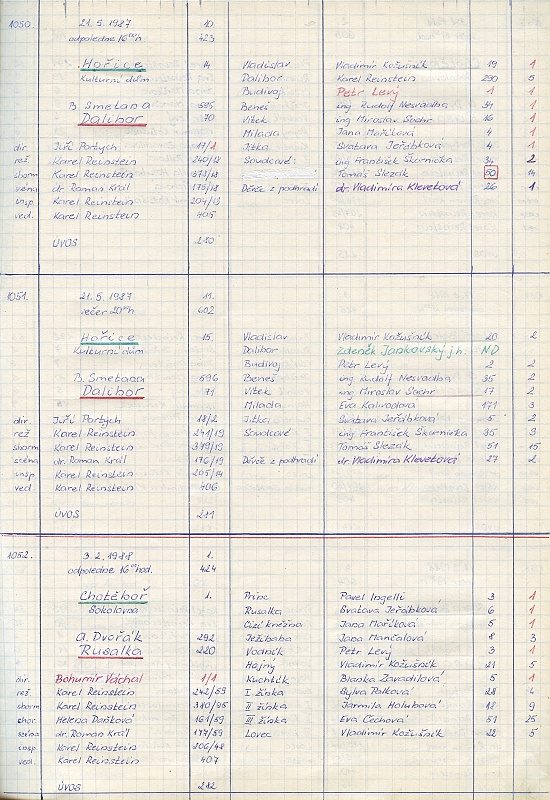 1050 21.5.1987 10.
odpoledne 16⁰⁰h 423
Hořice 14 Vladislav Vladimír Kožušník 19 1
Kulturní dům Dalibor Karel Reinstein 290 5
Budivoj Petr Levý 1 1
B. Smetana 595 Beneš ing Rudolf Nesvadba 34 1
Dalibor 70 Vítek ing Miroslav Sochr 16 1
Milada Jana Maříková 4 1
dir. Jiří Portych 17/1 Jitka Svatava Jeřábková 4 1
rež. Karel Reinstein 240/18 Soudcové: ing František Skornička 34 2
sborm Karel Reinstein 378/18 Tomáš Slezák 50 14
scéna dr. Roman Král 175/18 Děvče z podhradí dr. Vladimíra Klevetová 26 1
insp. Karel Reinstein 204/13
ved. Karel Reinstein 405
ÚVOS 280
1051. 21.5.1987 11.
večer 20⁰⁰h 602
Hořice 15. Vladislav Vladimír Kožušník 20 2
Kulturní dům Dalibor Zdeněk Jankovský j.h. ND
Budivoj Petr Levý 2 2
B. Smetana 596 Beneš ing Rudolf Nesvadba 35 2
Dalibor 71 Vítek ing Miroslav Sochr 17 2
Milada Eva Kalivodová 171 3
dir. Jiří Portych 18/2 Jitka Svatava Jeřábková 5 2
rež Karel Reinstein 241/19 Soudcové: ing František Skornička 35 3
sborm. Karel Reinstein 379/19 Tomáš Slezák 51 15
scéna dr. Roman Král 176/19 Děvče z podhradí dr. Vladimíra Klevetová 27 2
insp. Karel Reinstein 205/14
ved. Karel Reinstein 406
ÚVOS 281
1052. 3.2.1988 1.
odpoledne 16⁰⁰hod. 424
Chotěboř 1. Princ Pavel Ingelli 3 1
Sokolovna Rusalka Svatava Jeřábková 6 1
Cizí kněžna Jana Maříková 5 1
A. Dvořák 292 Ježibaba Jana Mančalová 8 3
Rusalka 220 Vodník Petr Levý 3 1
Hajný Vladimír Kožušník 21 5
dir. Bohumír Váchal 1/1 Kuchtík Blanka Zavadilová 5 1
rež. Karel Reinstein 242/59 I. žínka Sylva Palková 28 4
sborm Karel Reinstein 380/95 II. žínka Jarmila Holubová 18 9
chor. Helena Daňková 161/59 III. žínka Eva Čechová 51 25
scéna dr. Roman Král 177/59 Lovec Vladimír Kožušník 22 5
insp. Karel Reinstein 206/48
ved. Karel Reinstein 407
ÚVOS 282